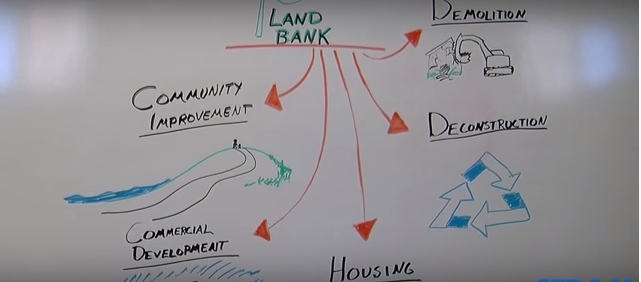 LAND
BANK
DEMOLITION
COMMUNITY
IMPROVEMENT
DECONSTRUCTION
COMMERCIAL
DEVELOPMENT
HOUSING